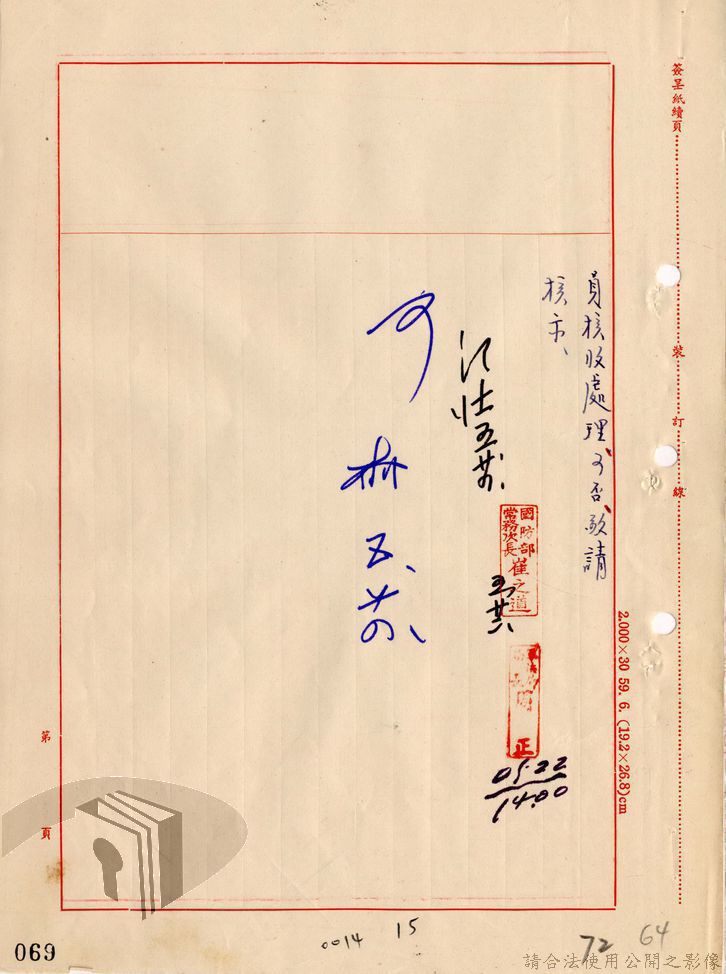 簽呈紙續頁
裝
訂
線
員核收處理、可否、敬請
核示、
國防部
常務次長
崔之道
正
05.22
14.00
可
林
2.000×30 59. 6. (19.2×26.8)cm
第
頁
069
0014
15
72
64
請合法使用公開之影像